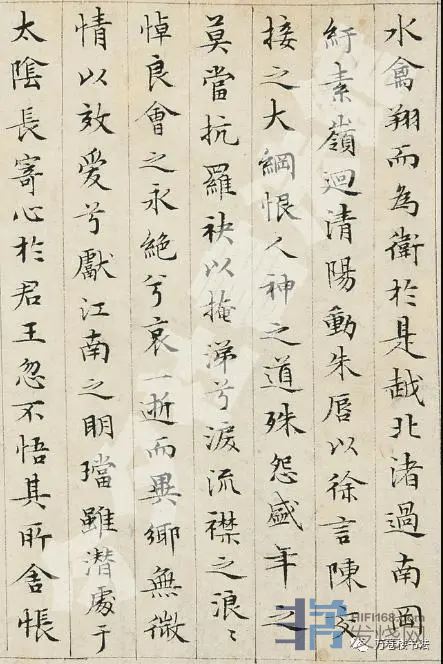 水禽翔而為衛於是越北渚過南岡
紆素嶺迴清陽動朱唇以徐言陳交
接之大綱恨人神之道殊怨盛年之
莫當抗羅袂以掩涕兮淚流襟之浪〻
悼良會之永絕兮哀一逝而異鄉無微
情以效愛兮獻江南之明璫雖潛處于
太陰長寄心於君王忽不悟其所舍悵
HIFI168.com
发烧网